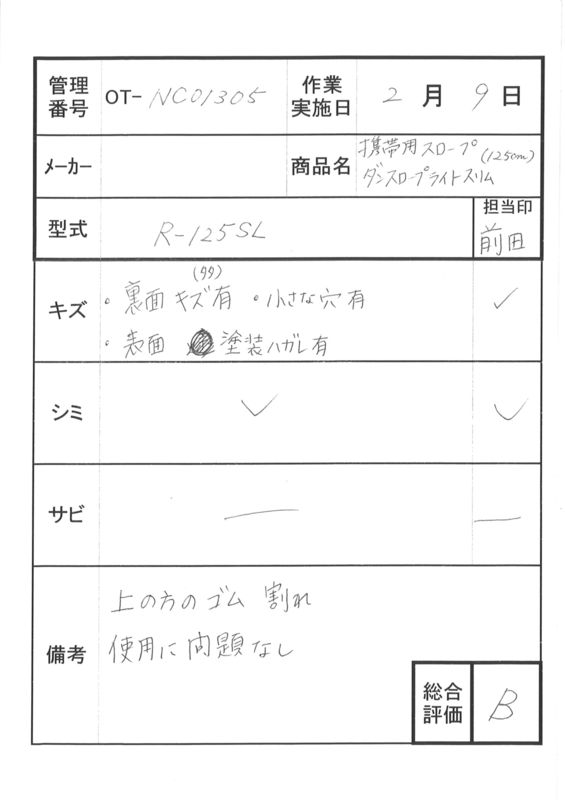 管理番号 OT- NC01305 作業実施日 2月9日
メーカー 商品名 携帯用スロープ(125cm)
ダンスロープライトスリム
型式 R-125SL 担当印 前田
キズ ・裏面 キズ有(多々) ・小さな穴有 ✓
・表面 塗装ハガレ有
シミ ✓ ✓
サビ — —
備考 上の方のゴム 割れ
使用に問題なし
総合評価 B